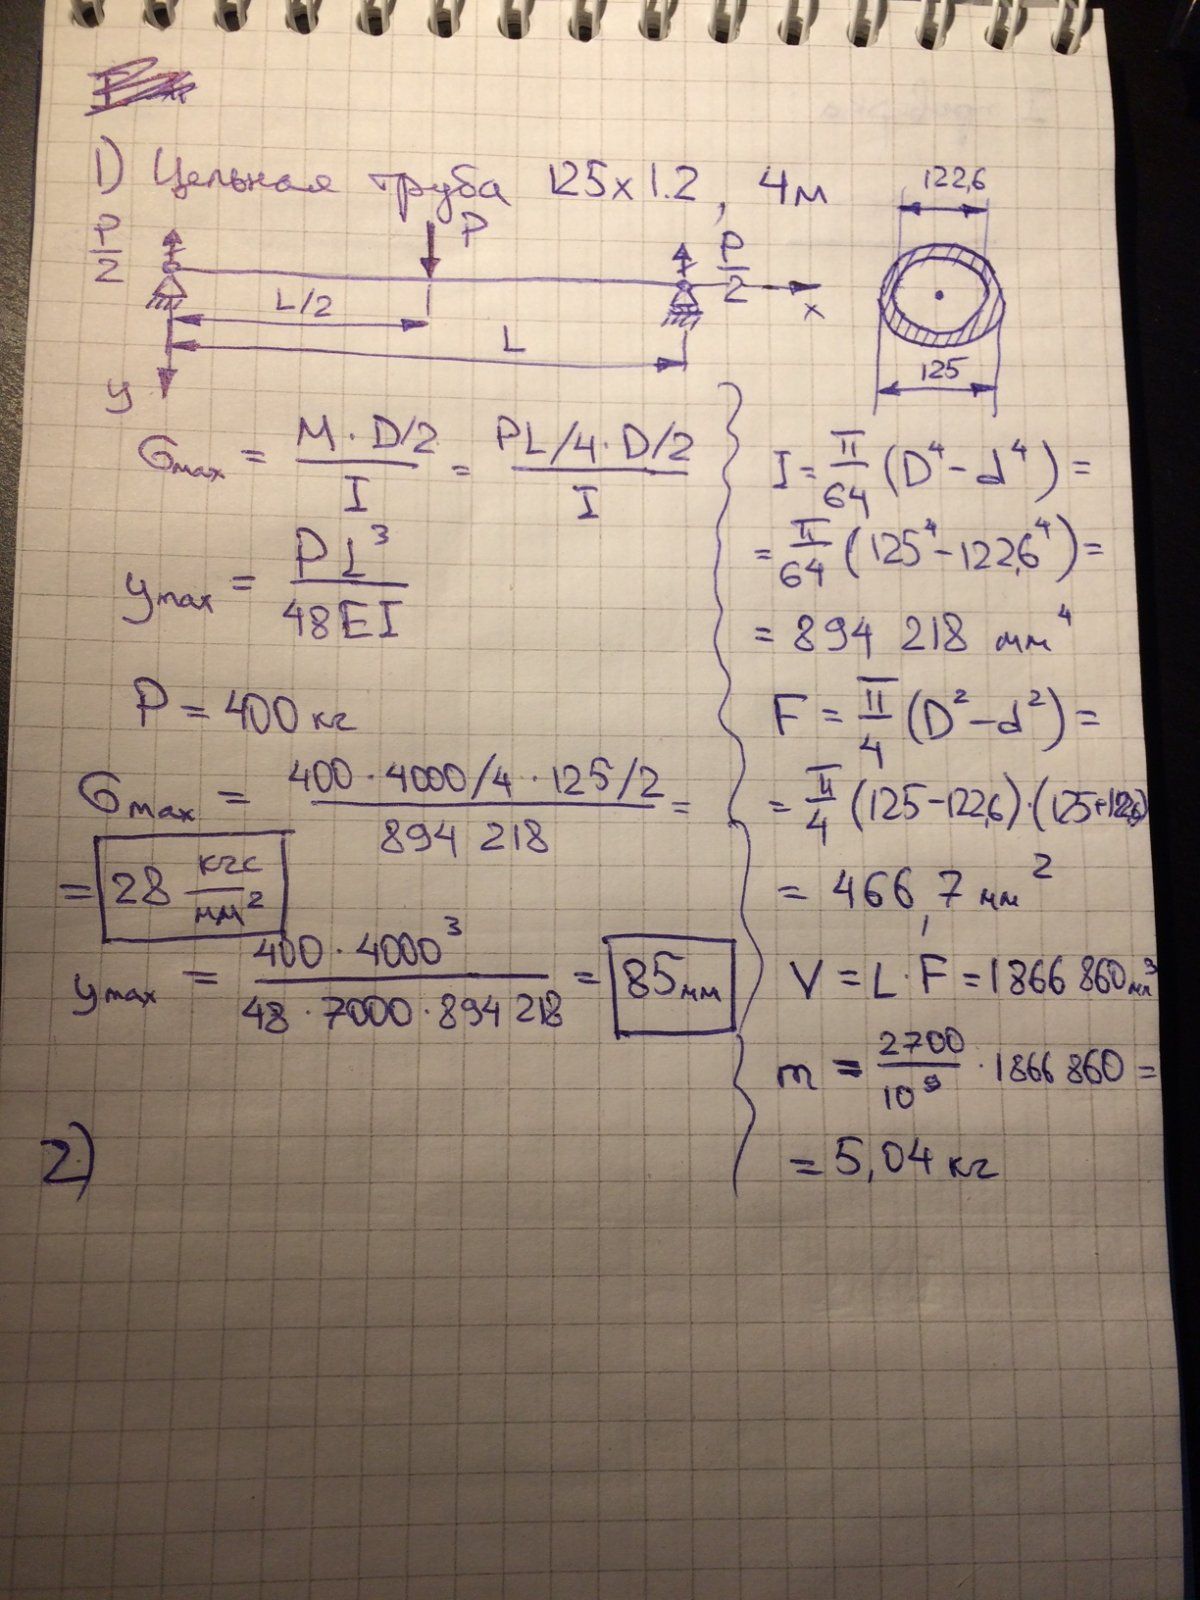 1) Цельная труба 125x1.2, 4м
P/2
P
P/2
L/2
L
x
y
122,6
125
σmax = M·D/2 / I = PL/4·D/2 / I
ymax = PL³ / 48EI
P = 400 кг
σmax = 400·4000/4·125/2 / 894 218 =
= 28 кгс/мм²
ymax = 400·4000³ / 48·7000·894 218 = 85 мм
2)
I = π/64 (D⁴ - d⁴) =
= π/64 (125⁴ - 122,6⁴) =
= 894 218 мм⁴
F = π/4 (D² - d²) =
= π/4 (125 - 122,6)·(125+122,6)
= 466,7 мм²
V = L·F = 1866 860 мм³
m = 2700/10⁹ · 1866 860 =
= 5,04 кг